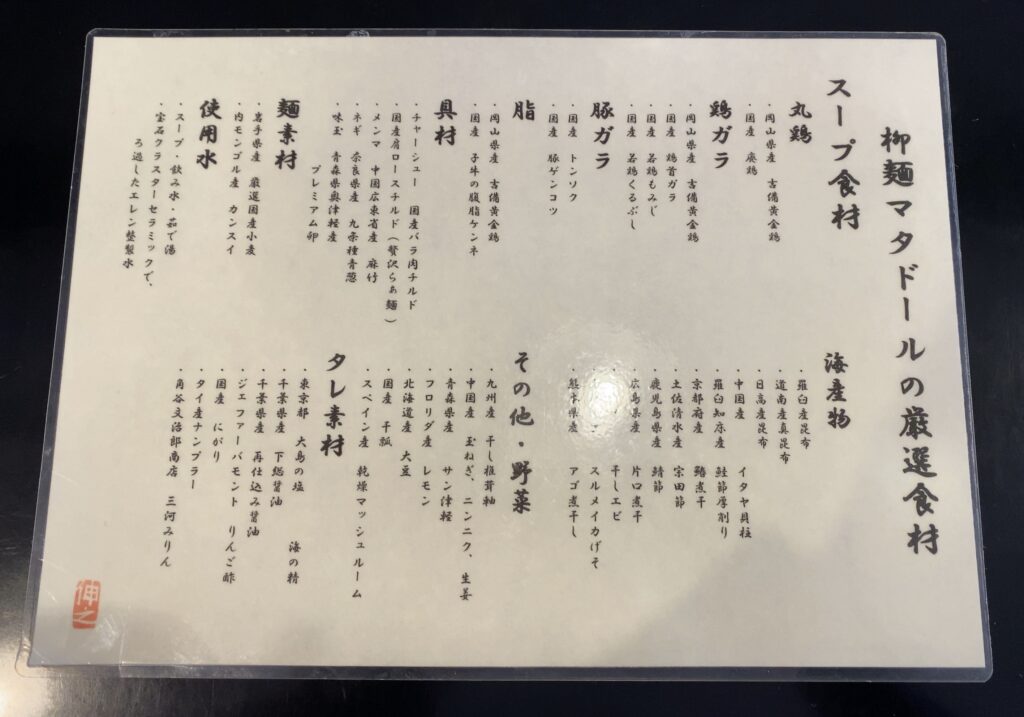 柳麺マタドールの厳選食材
スープ食材
丸鶏
・岡山県産 吉備黄金鶏
・国産 廃鶏
鶏ガラ
・岡山県産 吉備黄金鶏
・国産 鶏首ガラ
・国産 若鶏もみじ
・国産 若鶏くるぶし
豚ガラ
・国産 トンソク
・国産 豚ゲンコツ
脂
・岡山県産 吉備黄金鶏
・国産 子牛の腹脂ケンネ
具材
・チャーシュー 国産バラ肉チルド
・国産肩ロースチルド(贅沢らぁ麺)
・メンマ 中国広東省産 麻竹
・ネギ 奈良県産 九条種青葱
・味玉 青森県奥津軽産
プレミアム卵
麺素材
・岩手県産 厳選国産小麦
・内モンゴル産 カンスイ
使用水
・スープ・飲み水・茹で湯
・宝石クラスターセラミックで、
ろ過したエレン整製水
海産物
・羅臼産昆布
・道南産真昆布
・日高産昆布
・中国産 イタヤ貝柱
・羅臼知床産 鮭節厚削り
・京都府産 鰆煮干
・土佐清水産 宗田節
・鹿児島県産 鯖節
・広島県産 片口煮干
干しエビ
スルメイカげそ
・熊本県産 アゴ煮干し
その他・野菜
・九州産 干し椎茸軸
・中国産 玉ねぎ、ニンニク、生姜
・青森県産 サン津軽
・フロリダ産 レモン
・北海道産 大豆
・国産 干瓢
・スペイン産 乾燥マッシュルーム
タレ素材
・東京都 大島の塩 海の精
・千葉県産 下総醤油
・千葉県産 再仕込み醤油
・ジェファーバモント りんご酢
・国産 にがり
・タイ産ナンプラー
・角谷文治郎商店 三河みりん
伸之